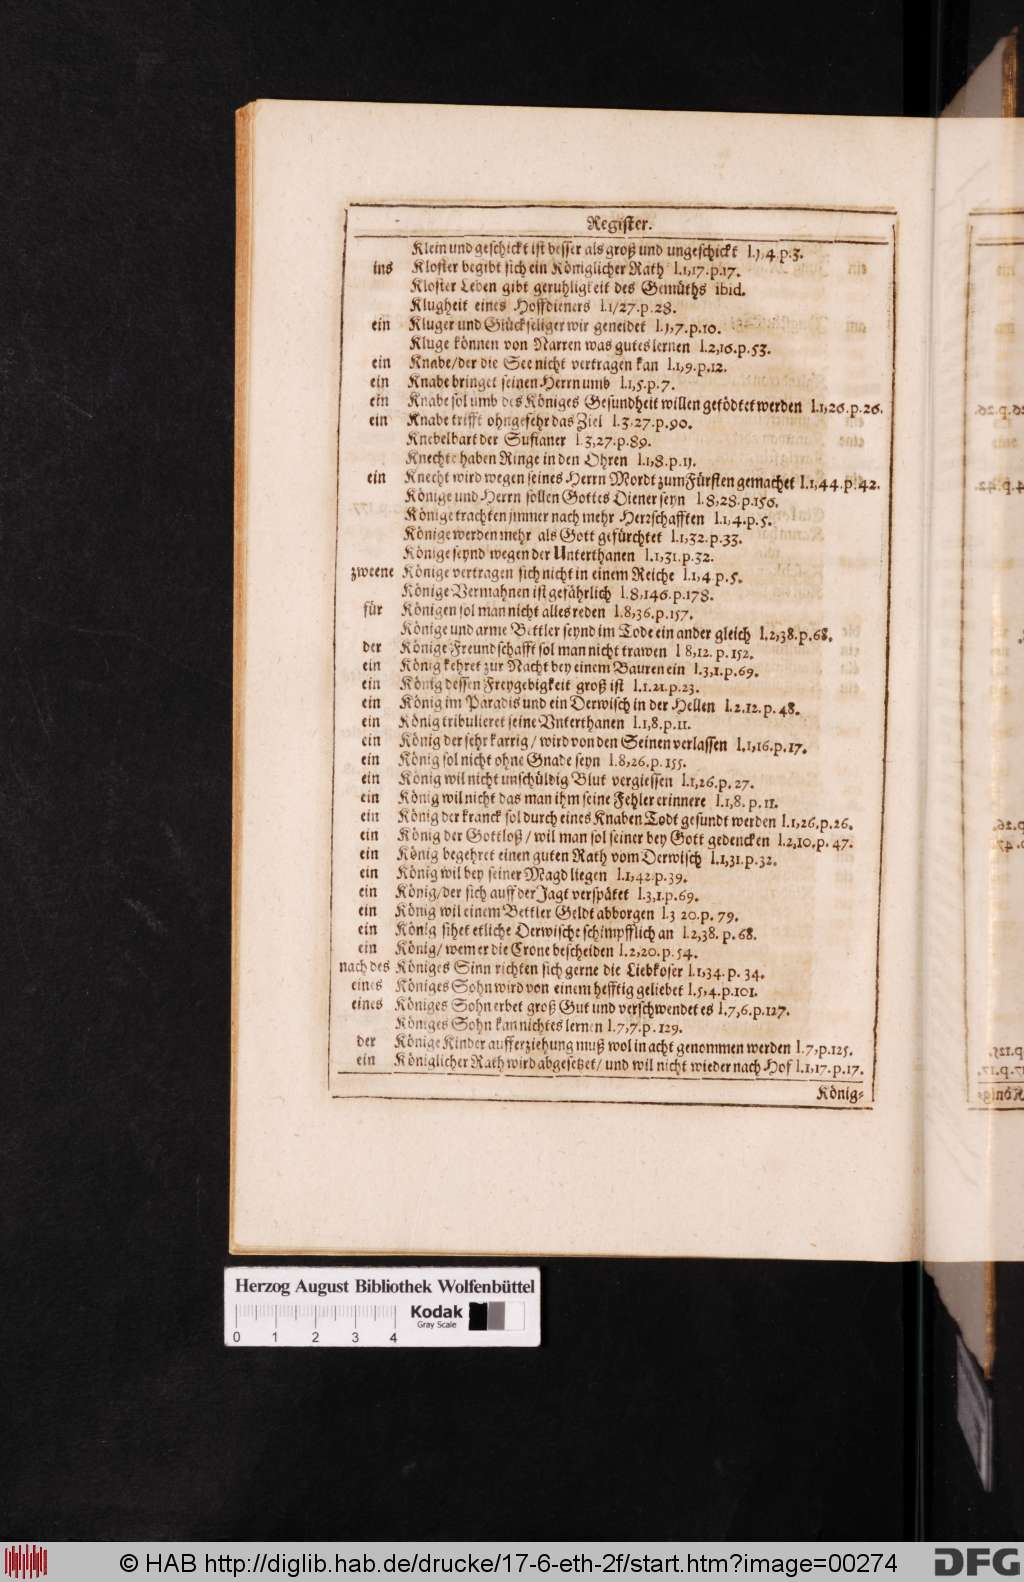 Register.
Klein und geschickt ist besser als groß und ungeschickt l.1,4 p.3.
ins Kloster begibt sich ein Königlicher Rath l.1,17.p.17.
Kloster Leben gibt geruhligkeit des Gemüths ibid.
Klugheit eines Hoffdieners l.1/27.p.28.
ein Kluger und Glückseliger wir geneidet l.1,7.p.10.
Kluge können von Narren was gutes lernen l.2,16.p.53.
ein Knabe/der die See nicht vertragen kan l.1,9.p.12.
ein Knabe bringet seinen Herrn umb l.1,5.p.7.
ein Knabe sol umb des Königes Gesundheit willen getödtet werden l.1,26.p.26.
ein Knabe trifft ohngefehr das Ziel l.3.27.p.90.
Knebelbart der Susianer l.3,27.p.89.
Knechte haben Ringe in den Ohren l.1,8.p.11.
ein Knecht wird wegen seines Herrn Mordt zum Fürsten gemachet l.1,44.p.42.
Könige und Herrn sollen Gottes Diener seyn l.8,28.p.156.
Könige trachten jmmer nach mehr Herrschafften l.1,4.p.5.
Könige werden mehr als Gott gefürchtet l.1,32.p.33.
Könige seynd wegen der Unterthanen l.1,31.p.32.
zweene Könige vertragen sich nicht in einem Reiche l.1,4.p.5.
Könige Vermahnen ist gefährlich l.8,146.p.178.
für Königen sol man nicht alles reden l.8,36.p.157.
Könige und arme Bettler seynd im Tode ein ander gleich l.2,38.p.68.
der Könige Freundschafft sol man nicht trawen l 8,12. p.152.
ein König kehret zur Nacht bey einem Bauren ein l.3,1.p.69.
ein König dessen Freygebigkeit groß ist l.1.21.p.23.
ein König im Paradis und ein Derwisch in der Hellen l.2.12.p.48.
ein König tribulieret seine Vnterthanen l.1,8.p.11.
ein König der sehr karrig / wird von den Seinen verlassen l.1,16.p.17.
ein König sol nicht ohne Gnade seyn l.8,26.p.155.
ein König wil nicht unschüldig Blut vergiessen l.1,26.p.27.
ein König wil nicht das man ihm seine Fehler erinnere l.1,8.p.11.
ein König der kranck sol durch eines Knaben Todt gesundt werden l.1,26.p.26.
ein König der Gottloß / wil man sol seiner bey Gott gedencken l.2,10.p.47.
ein König begehret einen guten Rath vom Derwisch l.1,31.p.32.
ein König wil bey seiner Magd liegen l.1,42.p.39.
ein König/der sich auff der Jagt verspätet l.3,1.p.69.
ein König wil einem Bettler Geldt abborgen l.3 20.p.79.
ein König sihet etliche Derwische schimpfflich an l.2,38.p.68.
ein König/ wem er die Crone bescheiden l.2,20.p.54.
nach des Königes Sinn richten sich gerne die Liebkoser l.1,34.p.34.
eines Königes Sohn wird von einem hefftig geliebet l.5,4.p.101.
eines Königes Sohn erbet groß Gut und verschwendet es l.7,6.p.127.
Königes Sohn kan nichtes lernen l.7,7.p.129.
der Könige Kinder aufferziehung muß wol in acht genommen werden l.7,p.125.
ein Königlicher Rath wird abgesetzet/ und wil nicht wieder nach Hof l.1,17.p.17.
König-
Herzog August Bibliothek Wolfenbüttel
Kodak
Gray Scale
0 1 2 3 4
© HAB http://diglib.hab.de/drucke/17-6-eth-2f/start.htm?image=00274
DFG